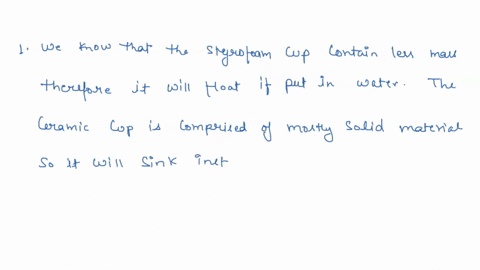 1. We know that the Styrofoam Cup Contain less mass
therefore it will float if put in water. The
Ceramic Cup is Comprised of mostly Solid material
So it will Sink inst